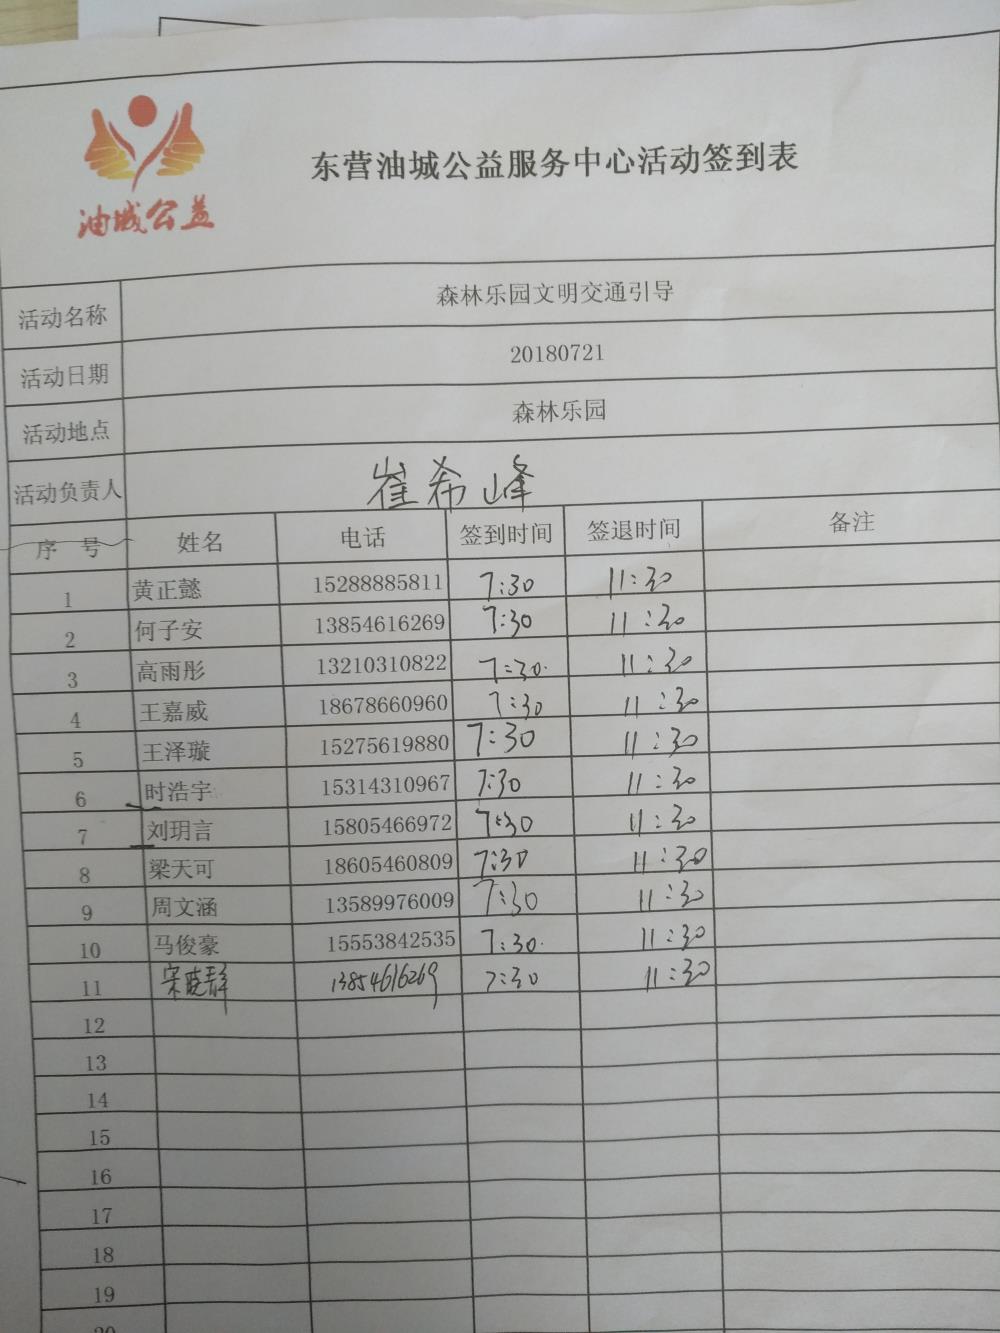 油城公益
东营油城公益服务中心活动签到表
活动名称 森林乐园文明交通引导
活动日期 20180721
活动地点 森林乐园
活动负责人 崔希峰
序号 姓名 电话 签到时间 签退时间 备注
1 黄正懿 15288885811 7:30 11:30
2 何子安 13854616269 7:30 11:30
3 高雨彤 13210310822 7:30 11:30
4 王嘉威 18678660960 7:30 11:30
5 王泽璇 15275619880 7:30 11:30
6 时浩宇 15314310967 7:30 11:30
7 刘玥言 15805466972 7:30 11:30
8 梁天可 18605460809 7:30 11:30
9 周文涵 13589976009 7:30 11:30
10 马俊豪 15553842535 7:30 11:30
11 宋晓群 13854616269 7:30 11:30
12
13
14
15
16
17
18
19